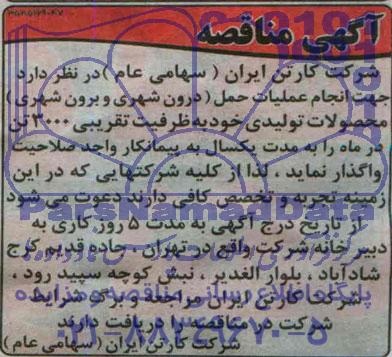 آگهی مناقصه
شرکت کارتن ایران ( سهامی عام ) در نظر دارد
جهت انجام عملیات حمل ( درون شهری و برون شهری )
محصولات تولیدی خود به ظرفیت تقریبی ۳۰۰۰ تن
در ماه را به مدت یکسال به پیمانکار واجد صلاحیت
واگذار نماید ، لذا از کلیه شرکتهایی که در این
زمینه تجربه و تخصص کافی دارند دعوت می شود
از تاریخ درج آگهی به مدت ۵ روز کاری به
دبیر خانه شرکت واقع در تهران - جاده قدیم کرج
شادآباد ، بلوار الغدیر ، نبش کوچه سپید رود ،
شرکت کارتن ایران مراجعه و برگه شرایط
شرکت در مناقصه را دریافت دارند
شرکت کارتن ایران (سهامی عام)
ParsNamadData